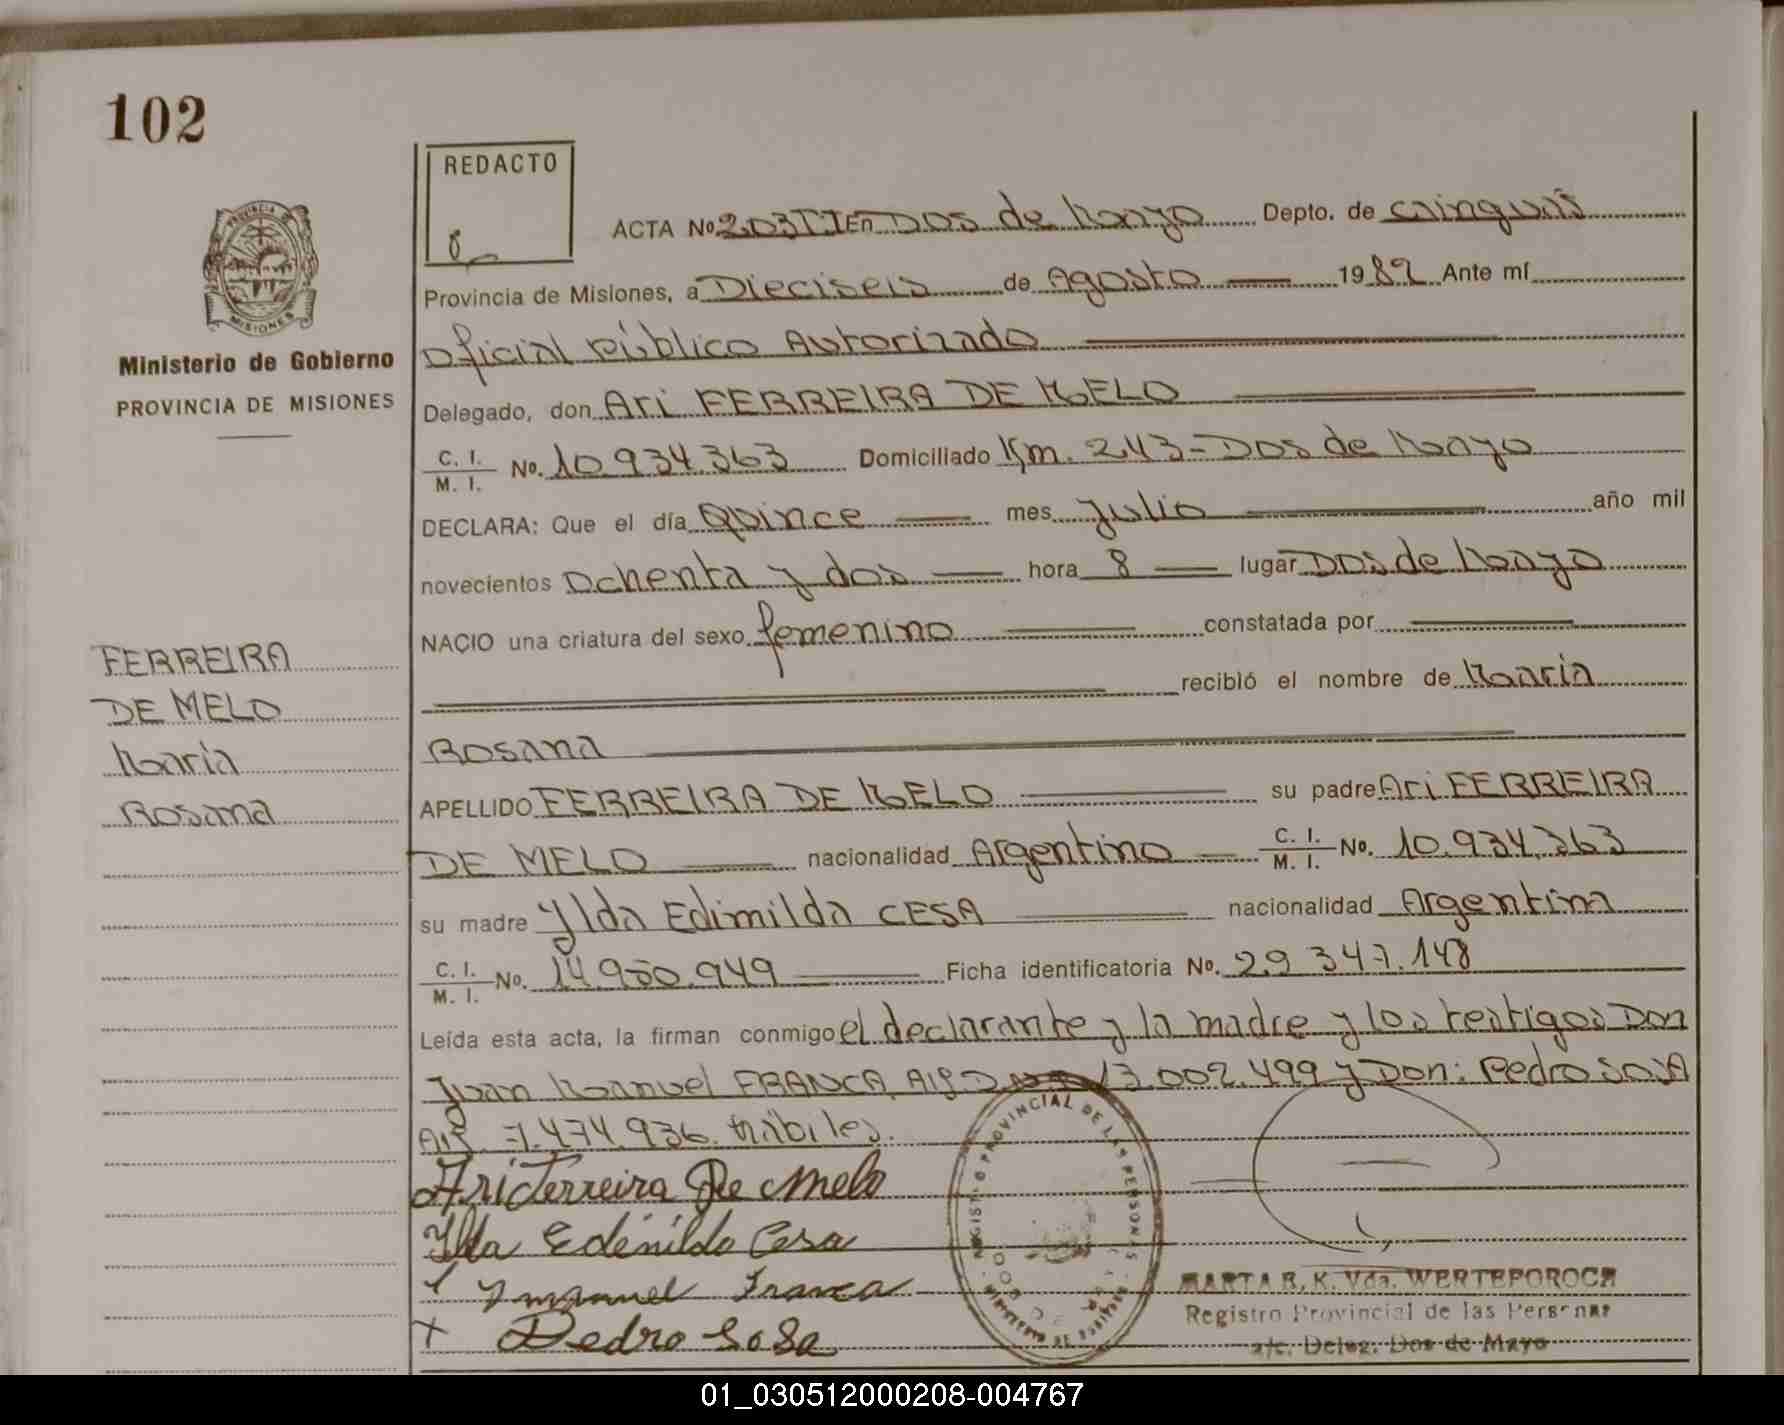 102
REDACTO
ACTA No 203TI En Dos de Mayo Depto. de Cainguás
Provincia de Misiones, a Dieciseis de Agosto 1982 Ante mí
Oficial Público Autorizado
Ministerio de Gobierno
PROVINCIA DE MISIONES
Delegado, don Ari FERREIRA DE MELO
C. I. / M. I. No. 10.934.363 Domiciliado Km. 243 - Dos de Mayo
DECLARA: Que el día Quince mes Julio año mil
novecientos Ochenta y dos hora 8 lugar Dos de Mayo
NACIO una criatura del sexo femenino constatada por
recibió el nombre de María
Rosana
FERREIRA
DE MELO
María
Rosana
APELLIDO FERREIRA DE MELO su padre Ari FERREIRA
DE MELO nacionalidad Argentino C. I. / M. I. No. 10.934.363
su madre Ylda Edimilda CESA nacionalidad Argentina
C. I. / M. I. No. 14.950.949 Ficha identificatoria No. 29.347.148
Leída esta acta, la firman conmigo el declarante y la madre y los testigos Don
Juan Manuel FRANCA 13.002.499 y Don: Pedro SOSA
7.474.936. hábiles.
Ari Ferreira De Melo
Ylda Edenilda Cesa
J manuel Franca
Pedro Sosa
PROVINCIAL DE LAS PERSONAS
MARTA R. K. Vda. WERTEPOROCH
Registro Provincial de las Personas
a/c. Deleg. Dos de Mayo
01_030512000208-004767